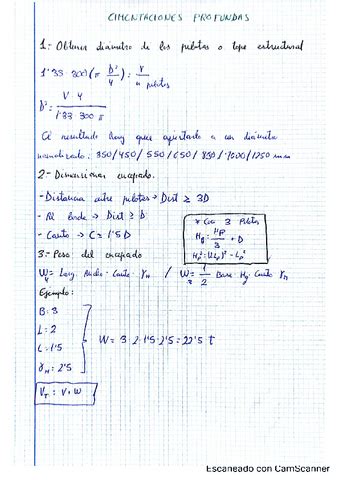 CIMENTACIONES PROFUNDAS
1- Obtener diámetro de los pilotes o tope estructural
1'33·300 (π D²/4) = V / n pilotes
D² = V·4 / 1'33·300·π
El resultado hay que ajustarlo a un diámetro
normalizado: 350/450/550/650/850/1000/1250 mm
2- Dimensionar encepado.
- Distancia entre pilotes → Dist ≥ 3D
- Al borde → Dist ≥ D
- Canto → C = 1'5 D
* Con 3 Pilotes
Hg = Hp/3 + D
Hp² = (Lp)² - Lp²
3- Peso del encepado
W = Larg. Ancho · Canto · γH / W = 1/2 Base · Hg · Canto γH
Ejemplo:
B = 3
L = 2
C = 1'5
γH = 2'5
W = 3·2·1'5·2'5 = 22'5 t
VT = V + W
Escaneado con CamScanner